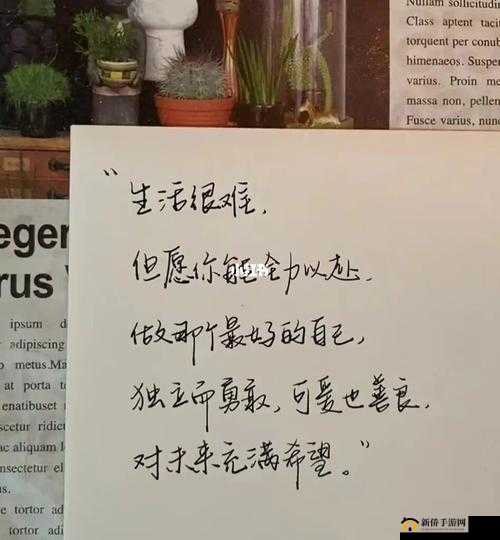 Nullam sollicitudin
Class aptent tacit
torquent per conub
himenaeos. Suspen
varius. Proin me
massa non, pellen
Fusce varius, nunc
"生活很难,
但愿你能全力以赴,
做那个最好的自己,
独立而勇敢,可爱也善良,
对未来充满希望。"
egen
rus
ipsum d
adipiscing
metus.Ma
at porta t
enatibus et
scetur ridic
ac aliquam l
nsectetur el
us.
e tortor ad
tortor adi
新侨手游网